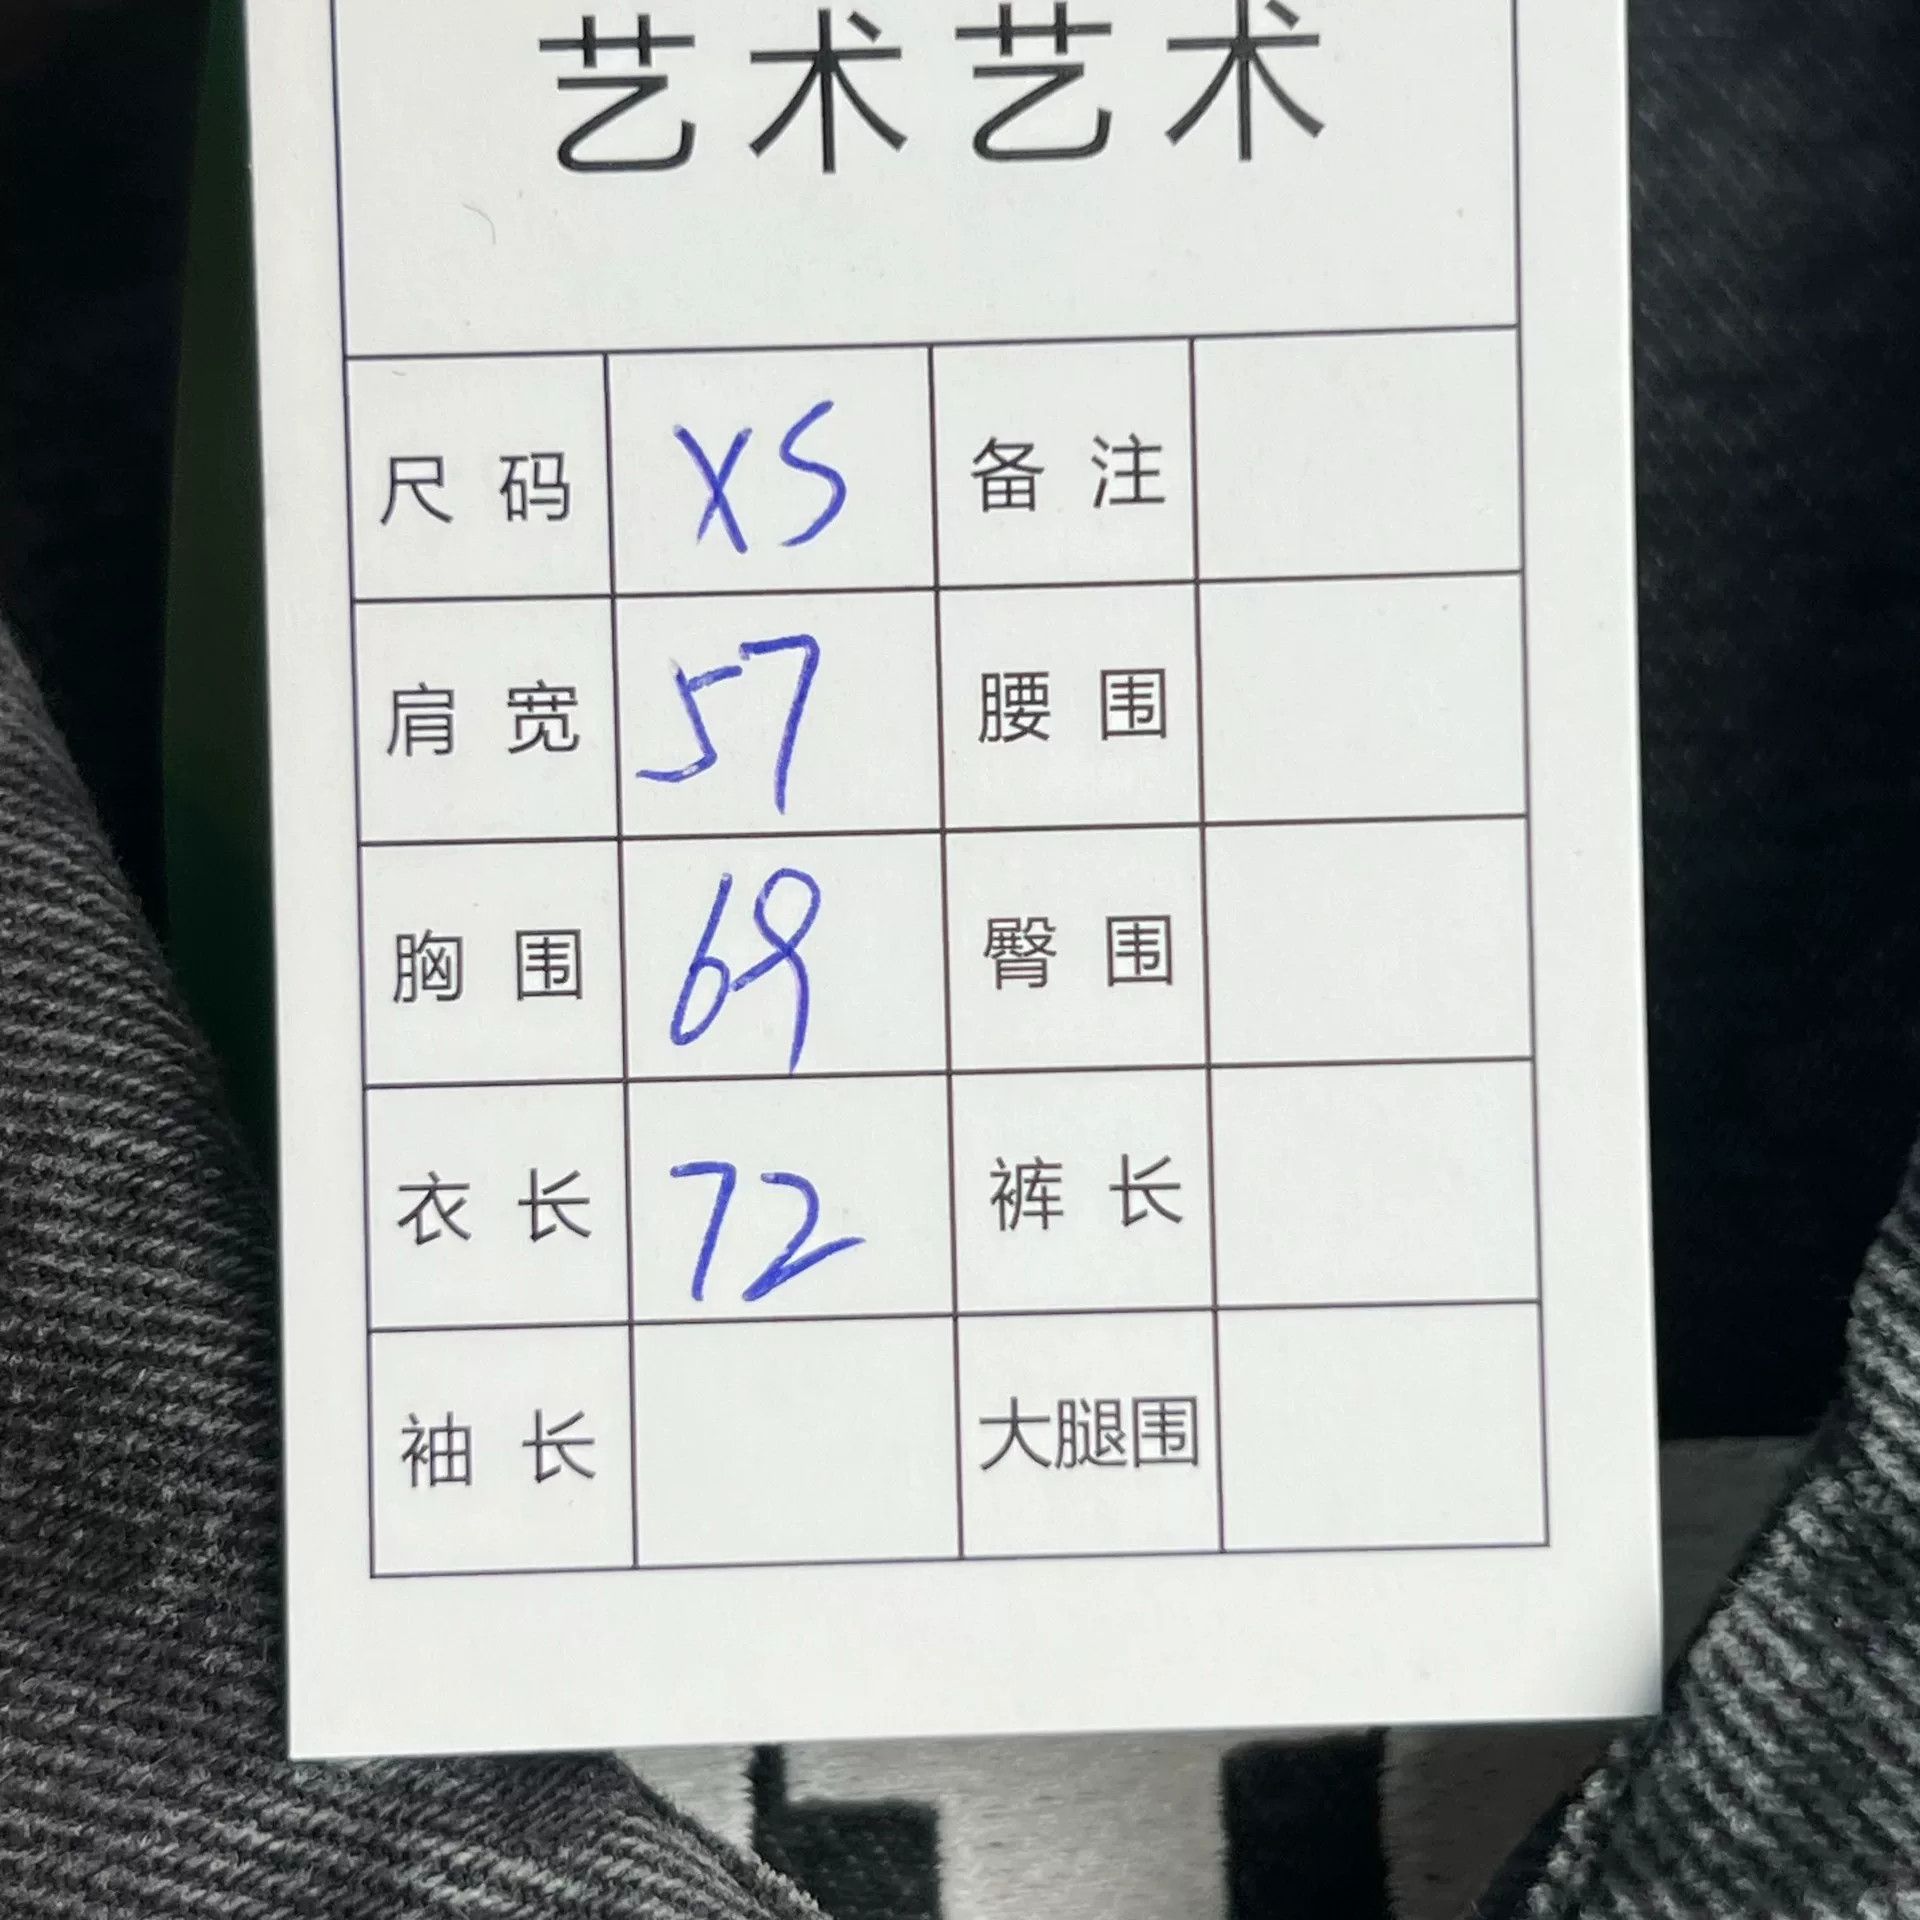 艺术艺术
尺码 XS 备注
肩宽 57 腰围
胸围 69 臀围
衣长 72 裤长
袖长 大腿围